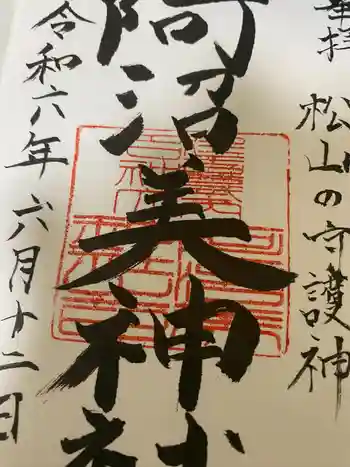 奉拝
松山の守護神
阿沼美神社
令和六年六月十二日